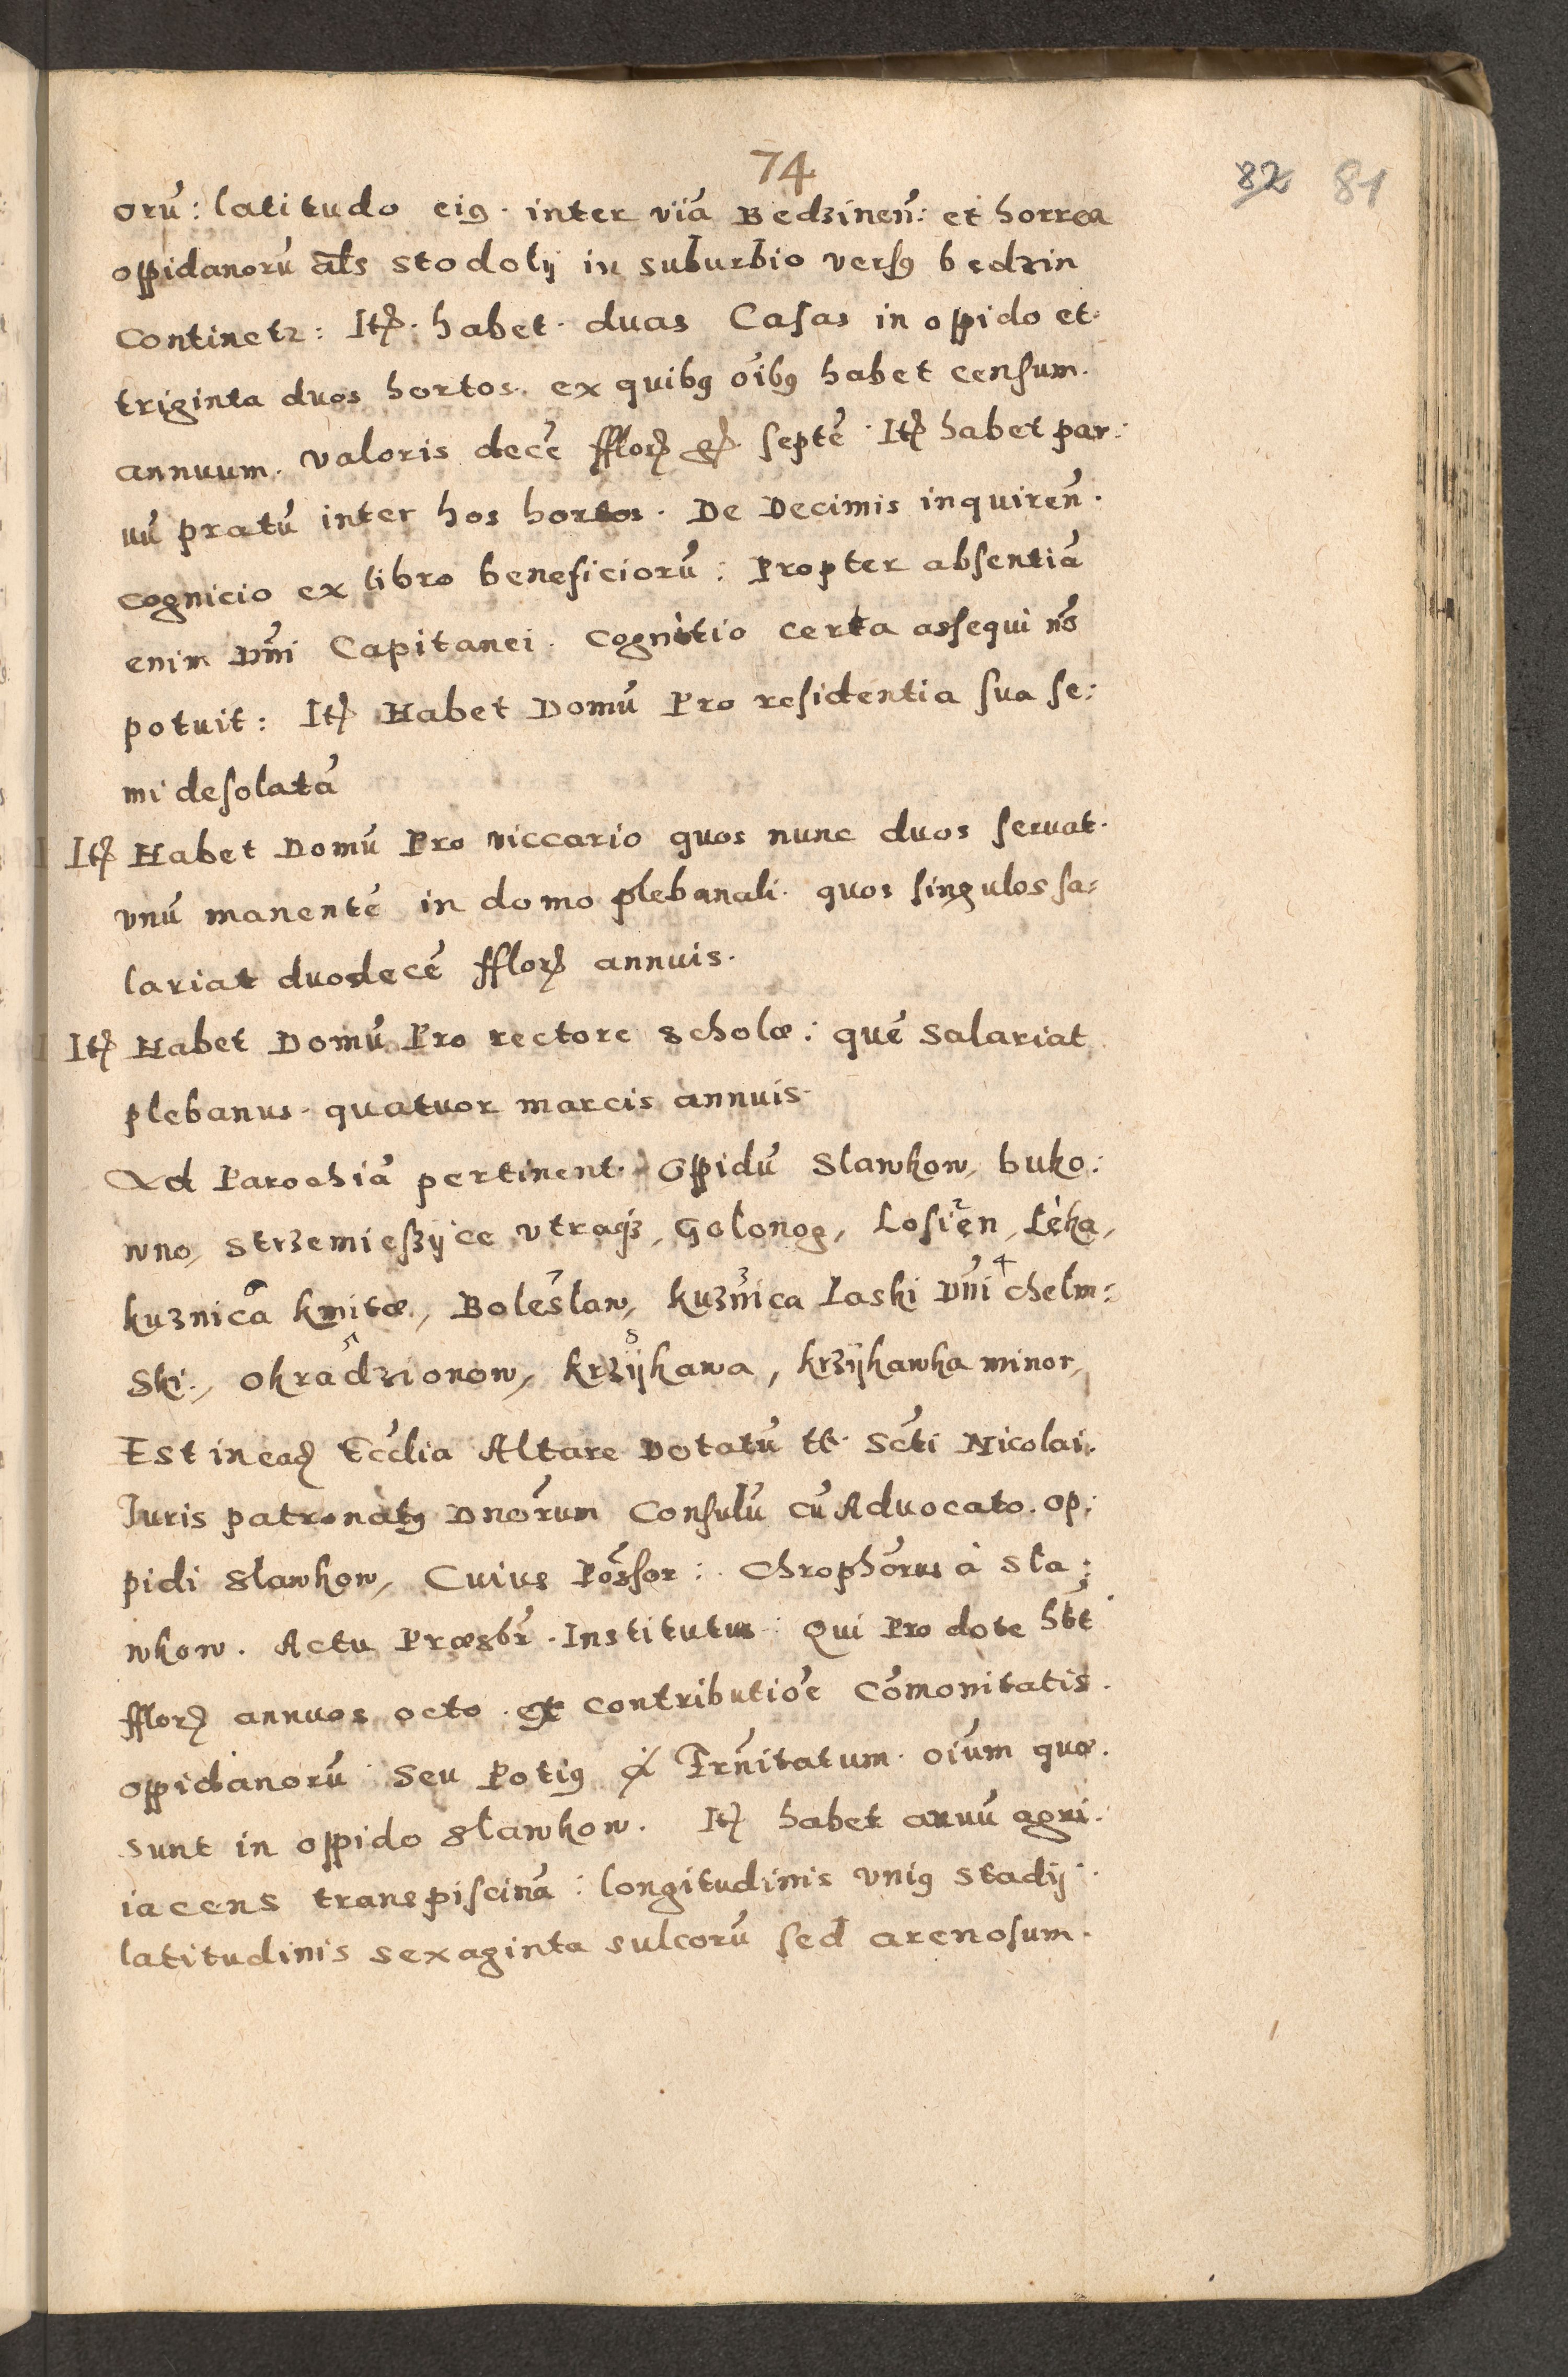 74
82 81
orū: latitudo eiꝰ. inter viā Bedzinen̄: et horrea
oppidanorū al̄s stodolij in suburbio versꝰ bedzin
Continetr: Itꝫ. habet. duas Casas in oppido et.
triginta duos hortos. ex quibꝰ oībꝰ habet censum.
annuum. valoris decē fflorꝫ gꝫ septē. Itꝫ habet par:
uū pratū inter hos hortos. De Decimis inquiren̄.
cognicio ex libro beneficiorū: Propter absentiā
enim Dn̄i Capitanei. cognitio certa assequi nō
potuit: Itꝫ Habet Domū Pro residentia sua se:
mi desolatā
Itꝫ Habet Domū Pro viccario quos nunc duos seruat.
vnū manentē in domo plebanali. quos singulos sa:
lariat duodecē fflorꝫ annuis.
Itꝫ Habet Domū Pro rectore scholæ: quē Salariat
plebanus. quatuor marcis annuis.
Ad Parochiā pertinent. Oppidū Slawkow, buko:
wno, strzemieszyce vtraqꝫ, Golonog, Losień, Lèka,
kuznica kmitæ, Bolesław, kuznica Laski Dn̄i chelm:
Ski., okradzionow, krzÿkawa, krzÿkawka minor,
Est in eadꝫ Eccl̄ia Altare Dotatū tt. Sc̄ti Nicolai.
Iuris patronatꝰ Dnōrum Consulū cū Aduocato. op:
pidi Slawkow, Cuius Pōssor: Chrophōrus à Sla:
wkow. Actu Præsbr̄. Institutus: Qui Pro dote hb̄t
fflorꝫ annuos octo. ex contributiōe Cōmonitatis.
oppidanorū Seu Potiꝰ Frn̄itatum. oīum quæ.
sunt in oppido Slawkow. Itꝫ habet aruū agri.
iacens trans piscinā: longitudinis vniꝰ stadij.
latitudinis sexaginta sulcorū sed arenosum.